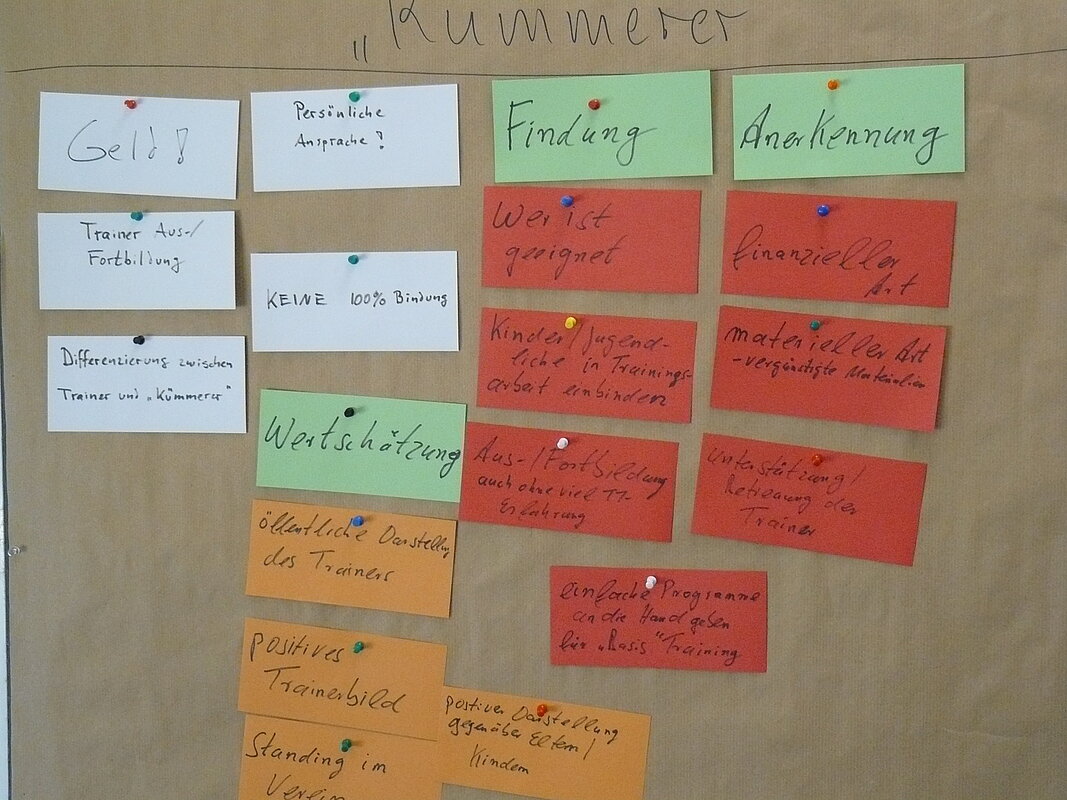 „Kümmerer
Geld!
Trainer Aus-/
Fortbildung
Differenzierung zwischen
Trainer und „Kümmerer"
Persönliche
Ansprache!
KEINE 100% Bindung
Wertschätzung
öffentliche Darstellung
des Trainers
positives
Trainerbild
Standing im
Verein
Findung
Wer ist
geeignet
Kinder/Jugend-
liche in Trainings-
arbeit einbinden
Aus-/Fortbildung
auch ohne viel TT-
Erfahrung
einfache Programme
an die Hand geben
für „Basis" Training
positive Darstellung
gegenüber Eltern/
Kindern
Anerkennung
finanzieller
Art
materieller Art
-vergünstigte Materialien
Unterstützung/
Betreuung der
Trainer